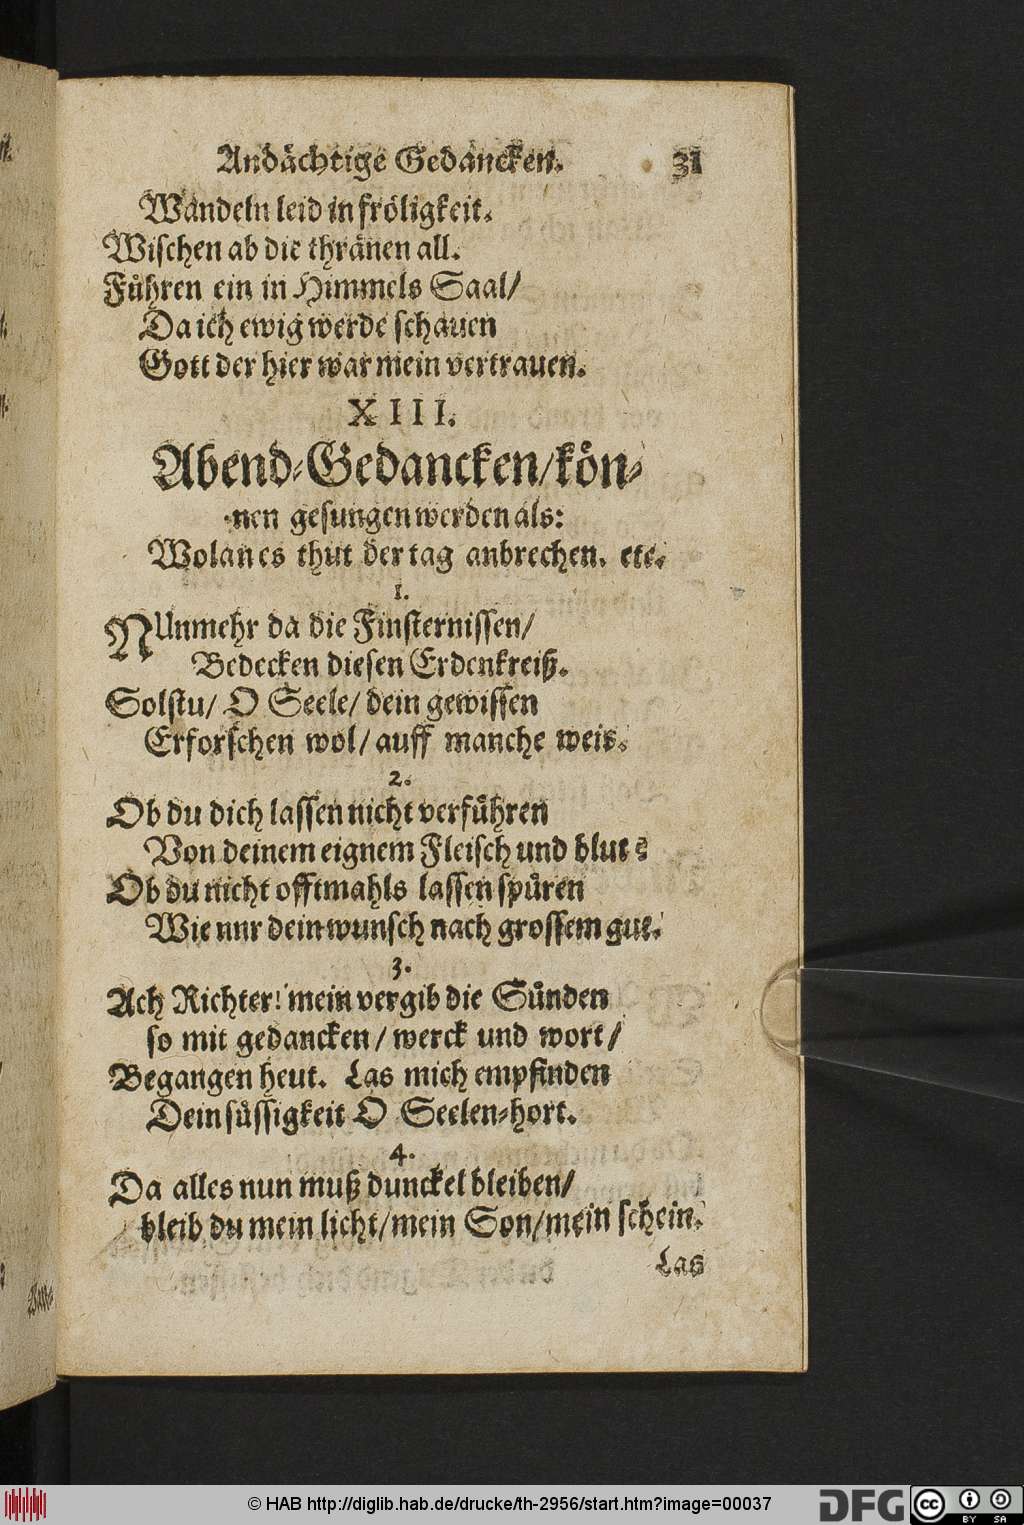 Andächtige Gedancken. 31
Wandeln leid in fröligkeit.
Wischen ab die thränen all.
Führen ein in Himmels Saal/
Da ich ewig werde schauen
Gott der hier war mein vertrauen.
XIII.
Abend-Gedancken/kön-
nen gesungen werden als:
Wolan es thut der tag anbrechen. etc.
1.
NUnmehr da die Finsternissen/
Bedecken diesen Erdenkreiß.
Solstu/ O Seele/ dein gewissen
Erforschen wol/ auff manche weis.
2.
Ob du dich lassen nicht verführen
Von deinem eignem Fleisch und blut?
Ob du nicht offtmahls lassen spüren
Wie nur dein wunsch nach grossem gut.
3.
Ach Richter! mein vergib die Sünden
so mit gedancken/ werck und wort/
Begangen heut. Las mich empfinden
Dein süssigkeit O Seelen-hort.
4.
Da alles nun muß dunckel bleiben/
bleib du mein licht/mein Son/mein schein.
Las
© HAB http://diglib.hab.de/drucke/th-2956/start.htm?image=00037
DFG
cc BY SA